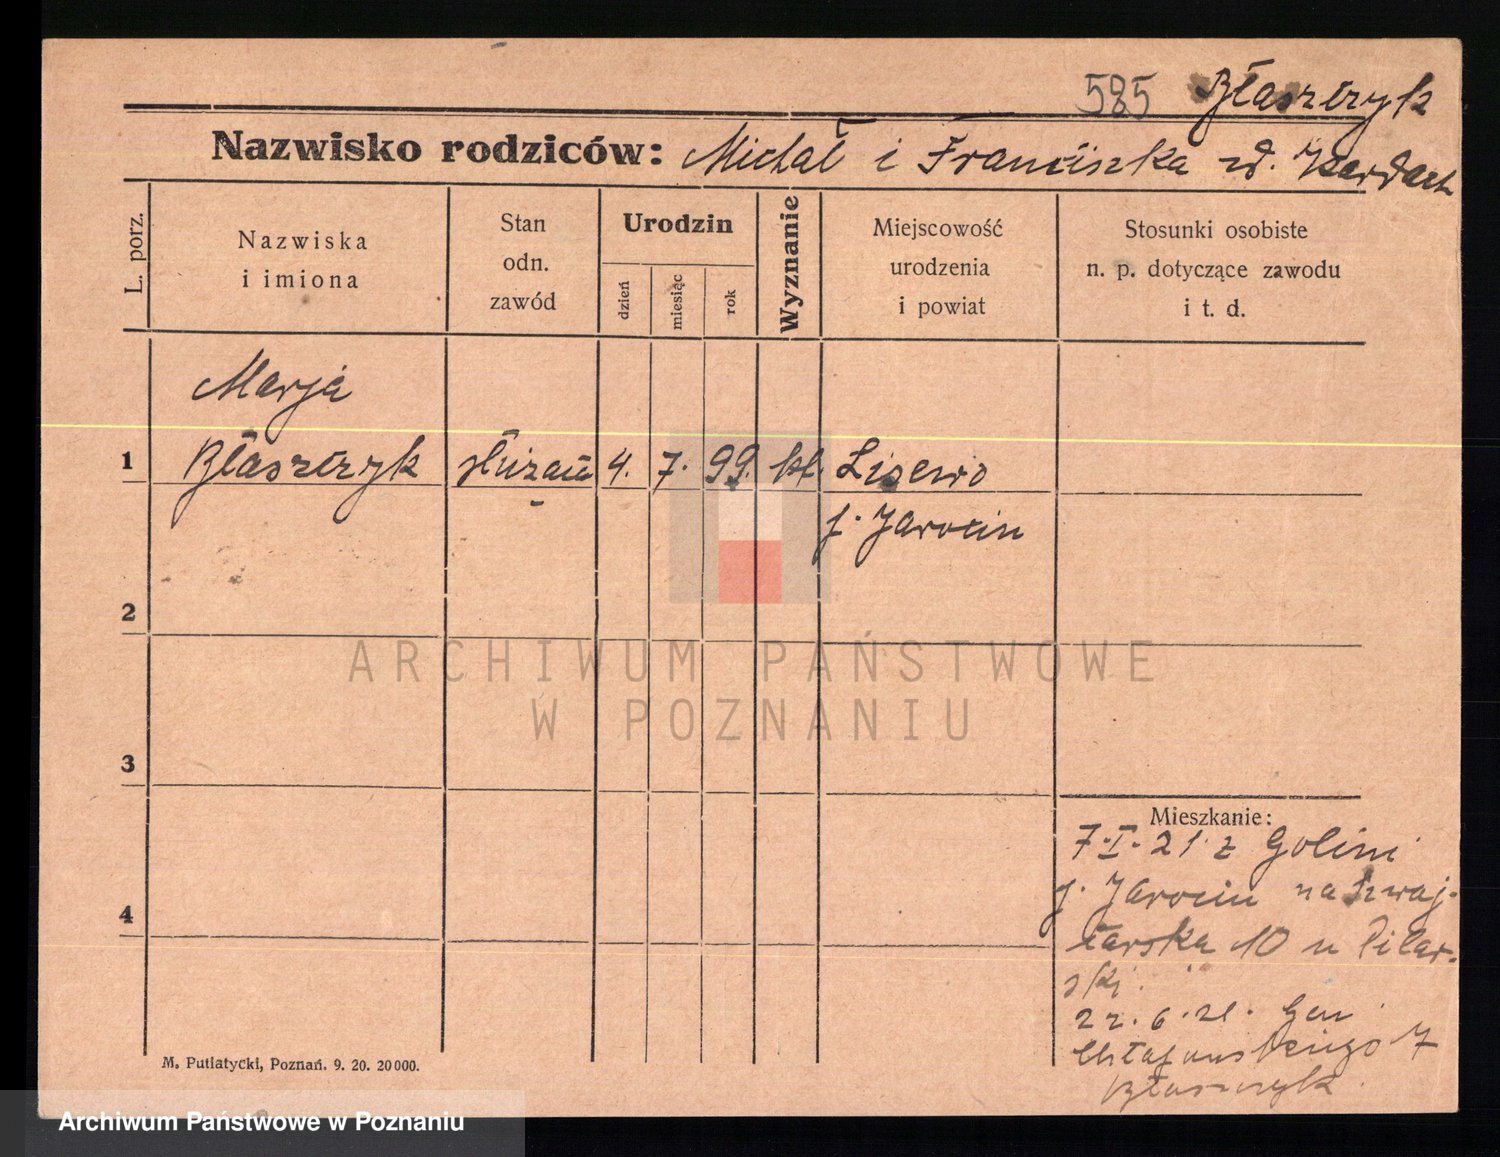 585 Błaszczyk
Nazwisko rodziców: Michał i Franciszka zd.
L. porz.
Nazwiska
i imiona
Stan
odn.
zawód
Urodzin
dzień
miesiąc
rok
Wyznanie
Miejscowość
urodzenia
i powiat
Stosunki osobiste
n. p. dotyczące zawodu
i t. d.
Marja
1 Błaszczyk służąca 4. 7. 99. kt. Lisewo
p. Jarocin
2
ARCHIWUM PAŃSTWOWE
W POZNANIU
3
Mieszkanie:
7.I.21 z Golini
4
p. Jarocin na Szwaj-
carska 10 u Pilar-
ski.
22.6.21. Gen
7
Błaszczyk
M. Putiatycki, Poznań. 9. 20. 20000.
Archiwum Państwowe w Poznaniu